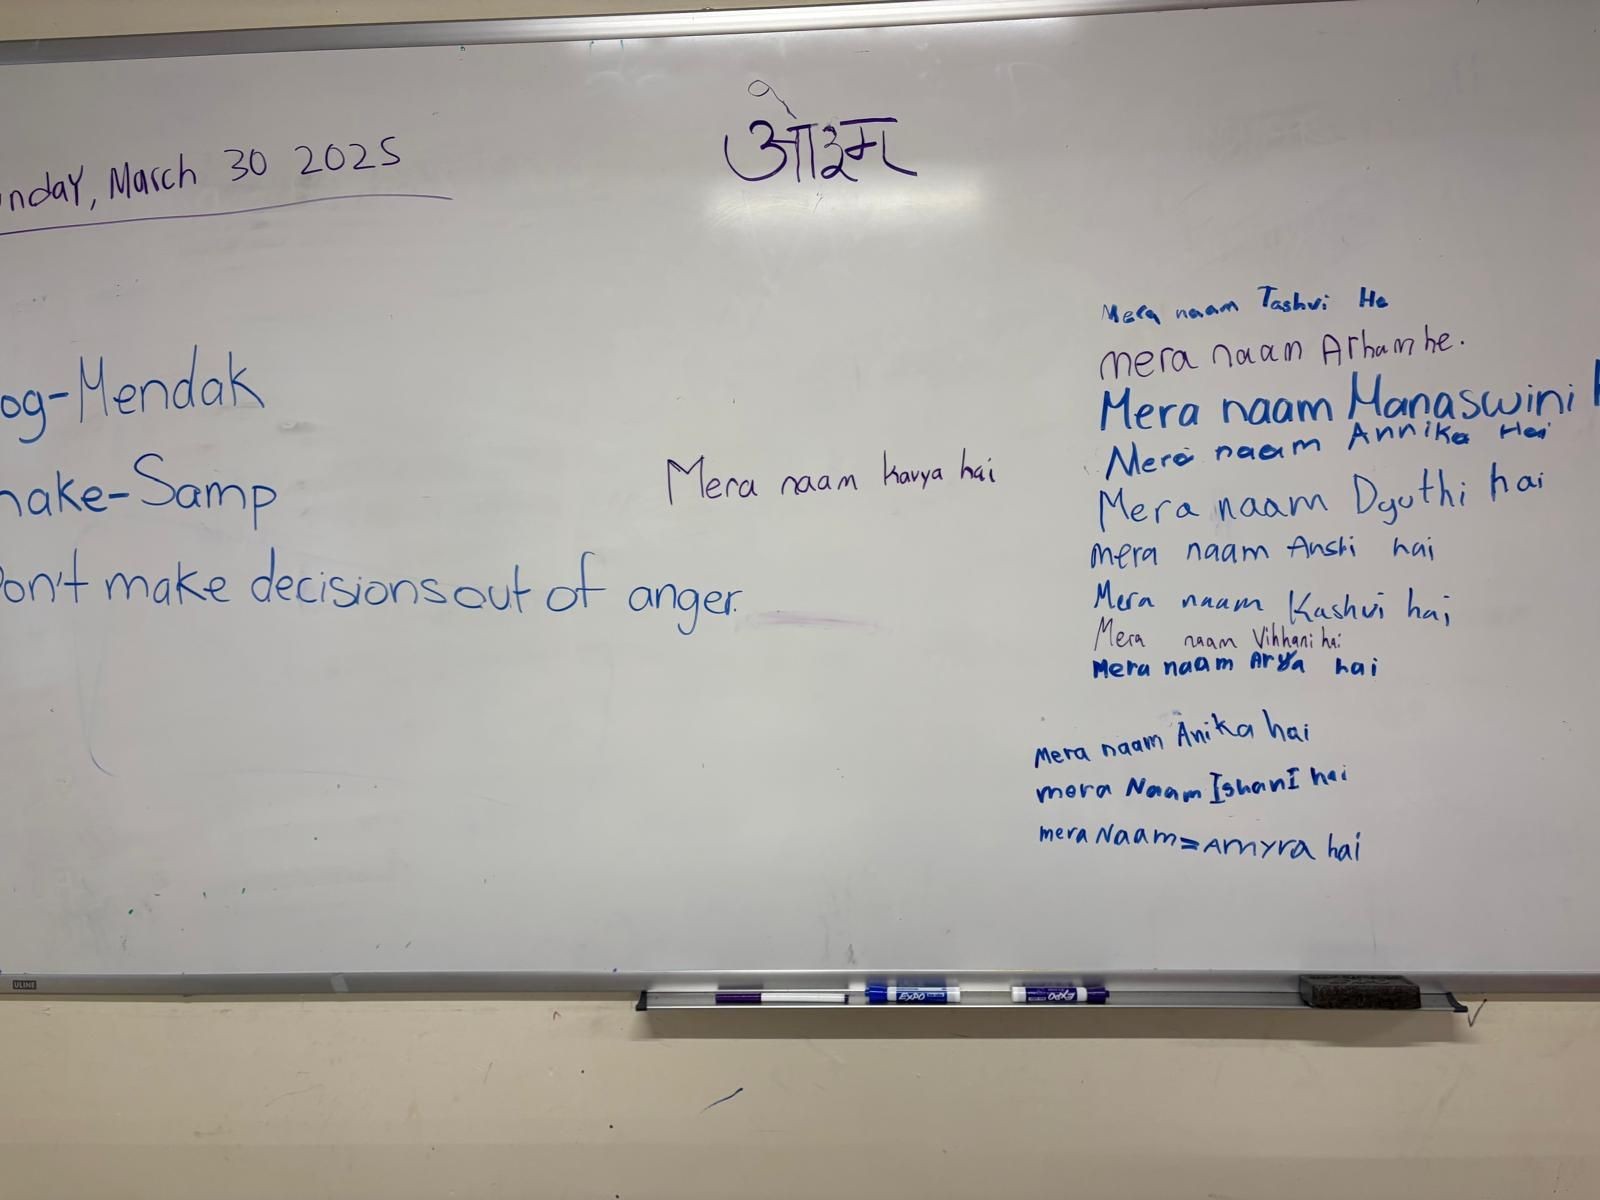 ओ३म्
nday, March 30 2025
og-Mendak
nake-Samp
on't make decisions out of anger.
Mera naam Kavya hai
Mera naam Tashvi He
mera naam Arham he.
Mera naam Manaswini
Mera naam Annika Hai
Mera naam Dyuthi hai
mera naam Anshi hai
Mera naam Kashvi hai
Mera naam Vihhani hai
Mera naam Arya hai
Mera naam Anika hai
mera Naam IshanI hai
mera Naam = Amyra hai
ULINE
EXPO
EXPO